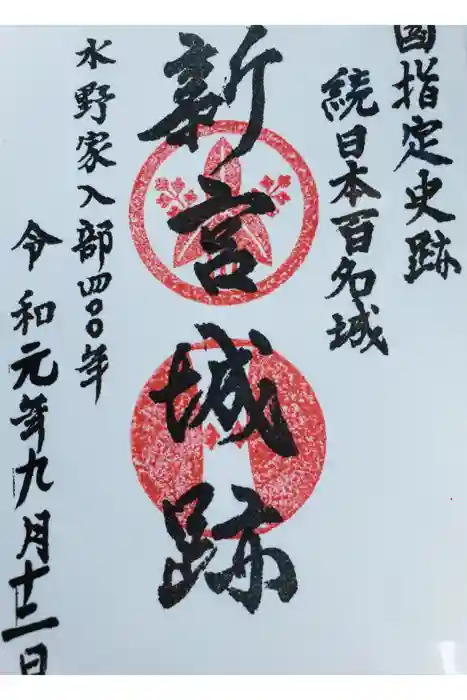 国指定史跡
続日本百名城
新宮城跡
水野家入部四〇〇年
令和元年九月十二日